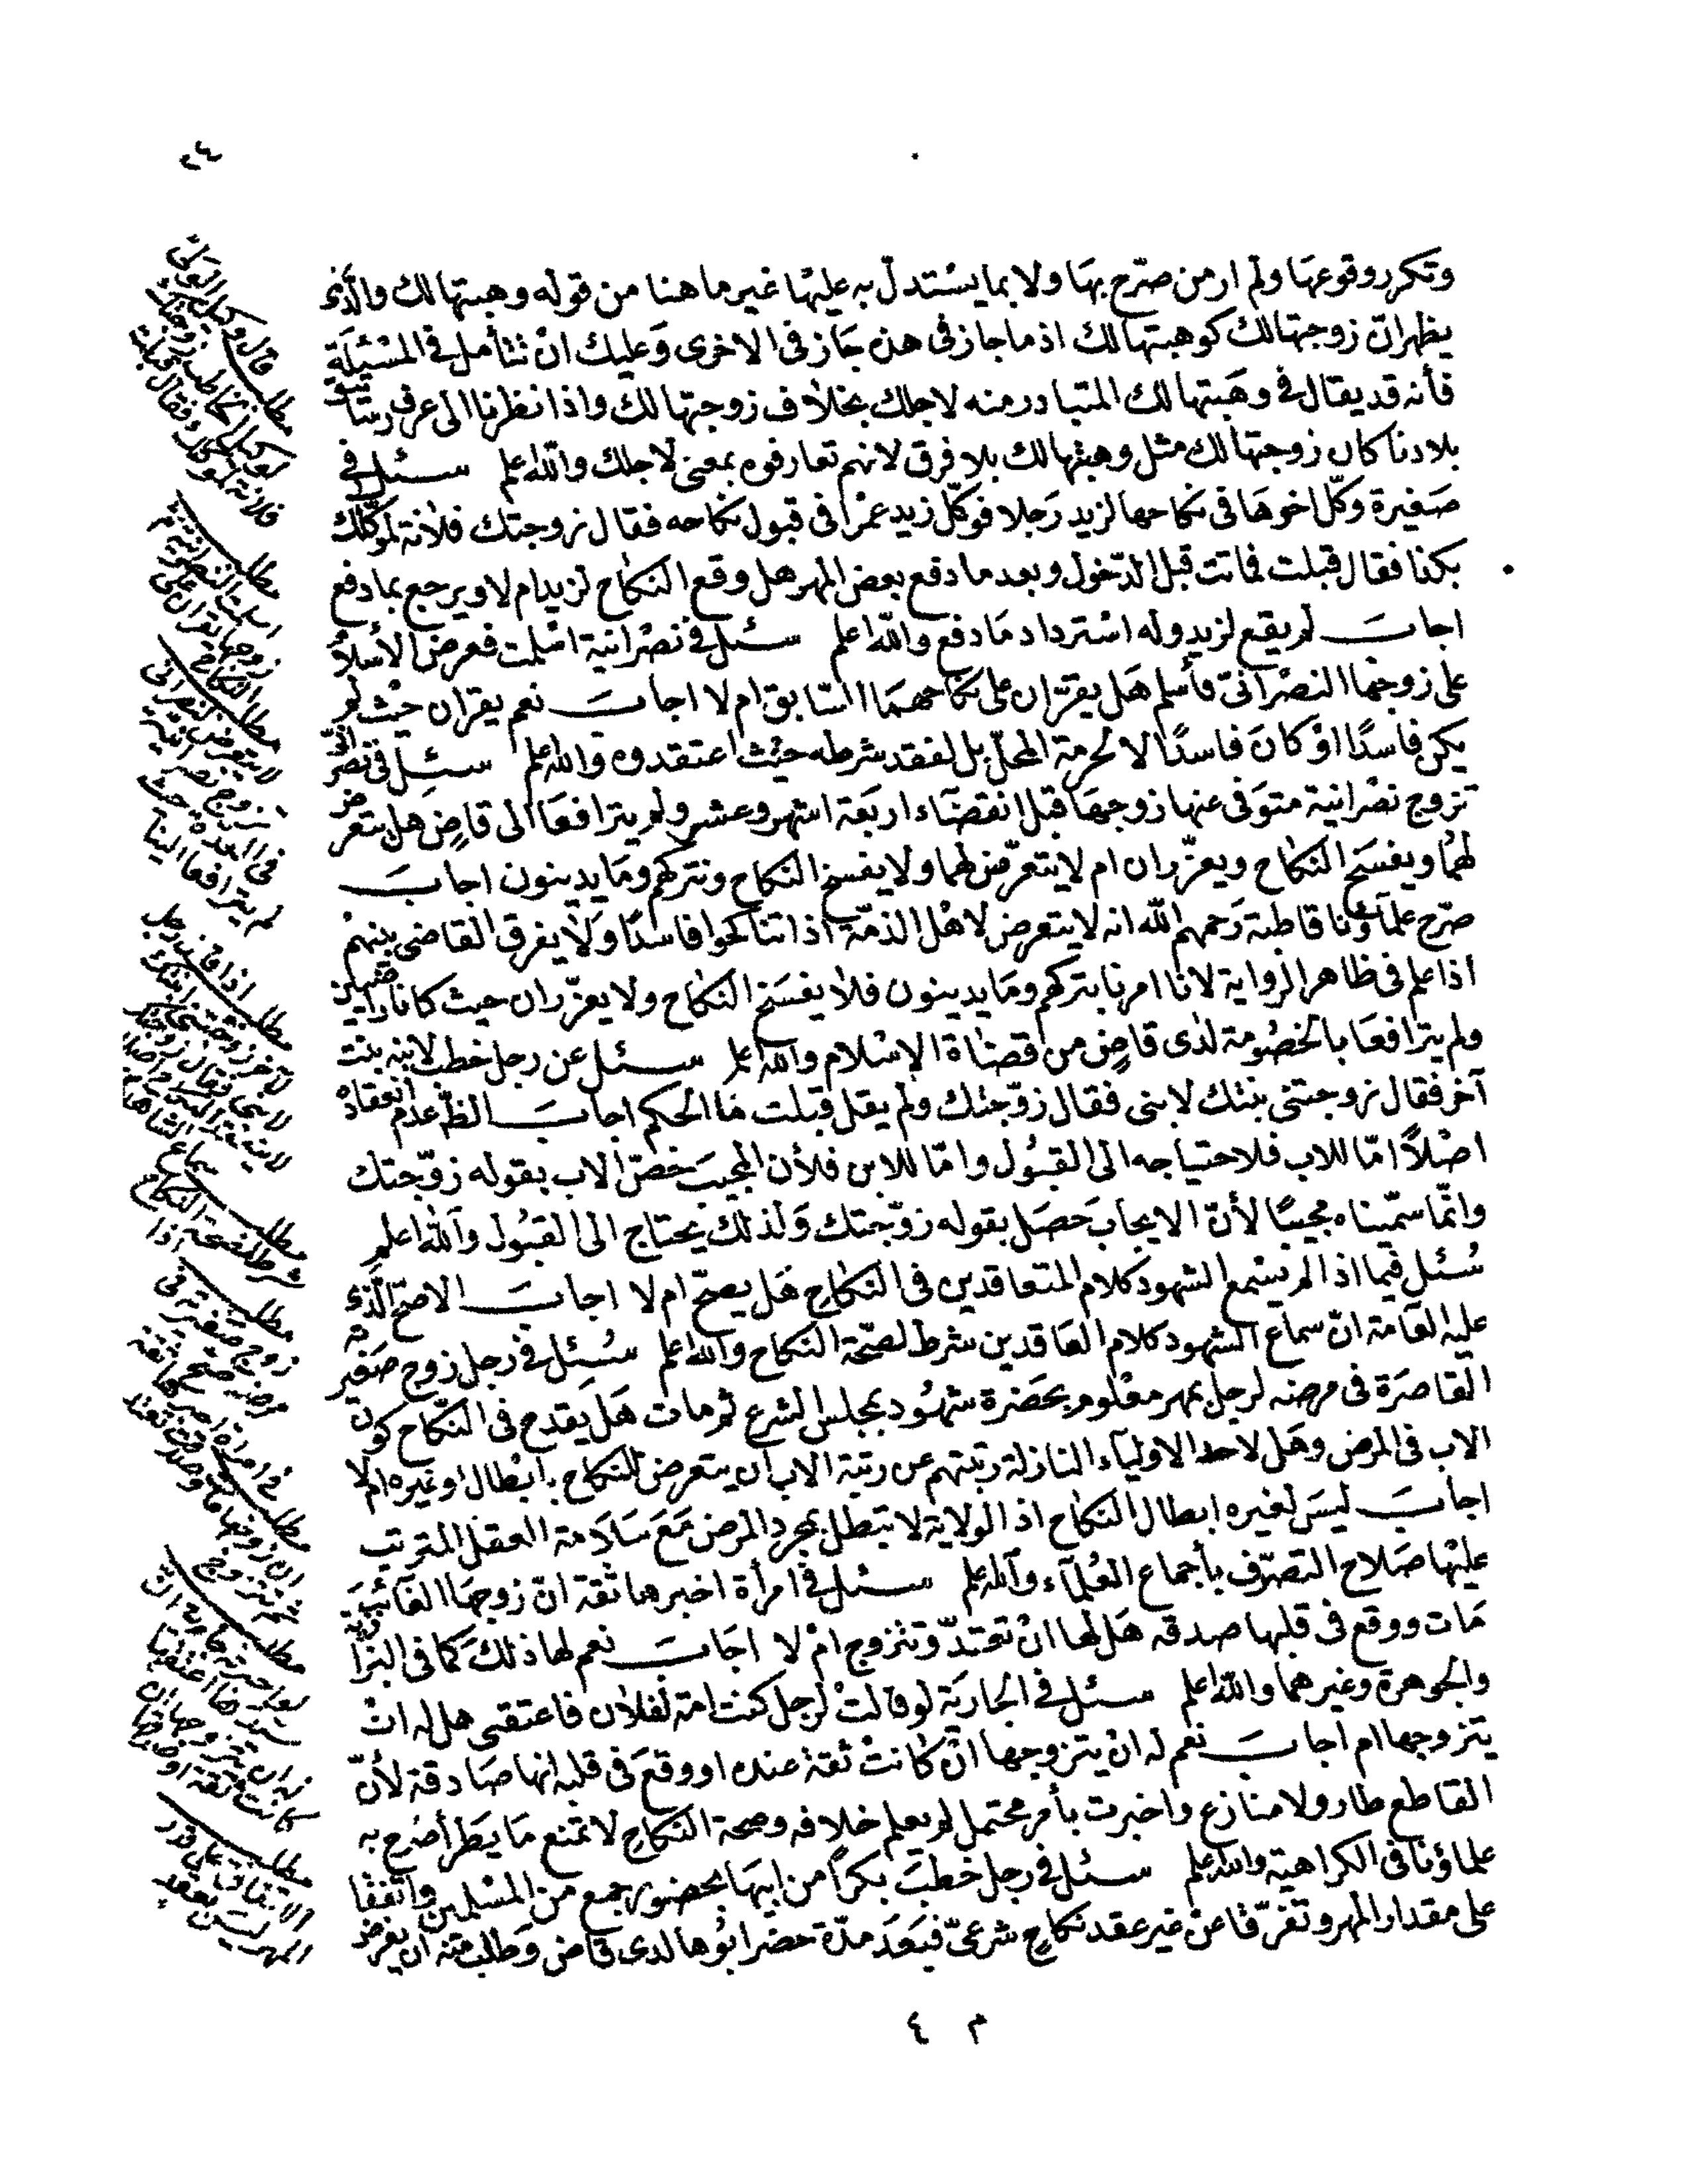 ٢٤
وتكرر وقوعها ولم ار من صرّح بها ولا بما يستدل به عليها غير ما هنا من قوله وهبتها لك والذى
يظهر انّ زوجتها لك كوهبتها لك اذ ما جاز فى هذه جاز فى الاخرى وعليك انْ تتأمل فى المسئلة
فأنه قد يقال فى وهبتها لك المتبادر منه لاجلك بخلاف زوجتها لك واذا نظرنا الى عرف رساتيق
بلادنا كان زوجتها لك مثل وهبتها لك بلا فرق لانهم تعارفوه بمعنى لاجلك والله اعلم سئل فى
صغيرة وكّل اخوها فى نكاحها لزيد رجلا فوكّل زيد عمرا فى قبول نكاحه فقال زوجتك فلانة لموكّلك
بكذا فقال قبلت فماتت قبل الدّخول وبعد ما دفع بعض المهر هل وقع النكاح لزيد ام لا ويرجع بما دفع
اجاب لم يقع لزيد وله استرداد ما دفع والله اعلم سئل فى نصرانية اسلمت فعرض الأسلام
على زوجها النصرانىّ فأسلم هل يقرّان على نكاحهما السّابق ام لا اجاب نعم يقران حيث لم
يكن فاسدًا اوْ كان فاسدًا لا لحرمة المحلّ بل لفقد شرطه حيث اعتقدوه والله اعلم سئل فى نصرانىّ
تزوج نصرانية متوفى عنها زوجها قبل انقضاء اربعة اشهر وعشر ولم يترافعا الى قاضٍ هل يتعرض
لهما ويفسخ النكاح ويعزّران ام لا يتعرّض لهما ولا يفسخ النكاح ونتركهم وما يدينون اجاب
صرّح علماؤنا قاطبة رحمهم الله انه لا يتعرض لاهل الذمّة اذا تناكحوا فاسدًا ولا يفرق القاضى بينهم
اذا علم فى ظاهر الرواية لانا امرنا بتركهم وما يدينون فلا يفسخ النكاح ولا يعزّران حيث كانا راضيين
ولم يترافعا بالخصومة لدى قاضٍ من قضاة الإسلام والله اعلم سئل عن رجل خطب لابنه بنت
آخر فقال زوجتنى بنتك لابنى فقال زوّجتك ولم يقل قبلت فما الحكم اجاب الظّ عدم انعقاده
اصْلاً امّا للاب فلاحتياجه الى القبول وامّا للابن فلأن المجيب خصّ الاب بقوله زوّجتك
وانّما سمّيناه مجيبًا لأنّ الايجاب حصل بقوله زوّجتك ولذلك يحتاج الى القبول والله اعلم
سُئل فيما اذا لم يسمع الشهود كلام المتعاقدين فى النكاح هل يصحّ ام لا اجاب الاصحّ الّذى
عليه العامة انّ سماع الشهود كلام العاقدين شرط لصحّة النكاح والله اعلم سُئل فى رجل زوج صغيرته
القاصرة فى مرضه لرجل بمهر معلوم بحضرة شهود بمجلس الشرع ثم مات هل يقدح فى النكاح كون
الاب فى المرض وهل لاحد الاولياء النازلة رتبتهم عن رتبة الاب ان يتعرض للنكاح بابطال او غيره ام لا
اجاب ليس لغيره ابطال النكاح اذ الولاية لا تبطل بمجرد المرض مع سلامة العقل المترتب
عليها صلاح التصرّف بأجماع العلماء والله اعلم سئل فى امرأة اخبرها ثقة انّ زوجها الغائب
مات ووقع فى قلبها صدقه هل لها انْ تعتدّ وتتزوج امْ لا اجاب نعم لها ذلك كما فى البزازية
والجوهرة وغيرهما والله اعلم سئل فى الجارية لو قالت لرجل كنت امة لفلان فاعتقنى هل له انْ
يتزوجها ام اجاب نعم له انْ يتزوجها انْ كانت ثقة عنده او وقع فى قلبه انها صادقة لأنّ
القاطع طار ولا منازع واخبرت بأمر محتمل لم يعلم خلافه وصحة النكاح لا تمنع ما يطرأ صرح به
علماؤنا فى الكراهية والله اعلم سئل فى رجل خطب بكراً من ابيها بحضور جمع من المسلمين واتفقا
على مقدار المهر وتفرّقا عنْ غير عقد نكاح شرعىّ فبعد مدّة حضر ابوها لدى قاض وطلب منه ان يفرض
مطلب
اسلمت النصرانية ثم
زوجها يقران على
النكاح
مطلب
لا يتعرض لنصرانى
تزوج نصرانية
فى العدة حيث
لم يترافعا الينا
مطلب
شرط لصحة النكاح
مطلب
زوج صغيرته فى
مرضه صح
مطلب
مطلب
الاتفاق على قدر
المهر ليس بعقد
م ٤